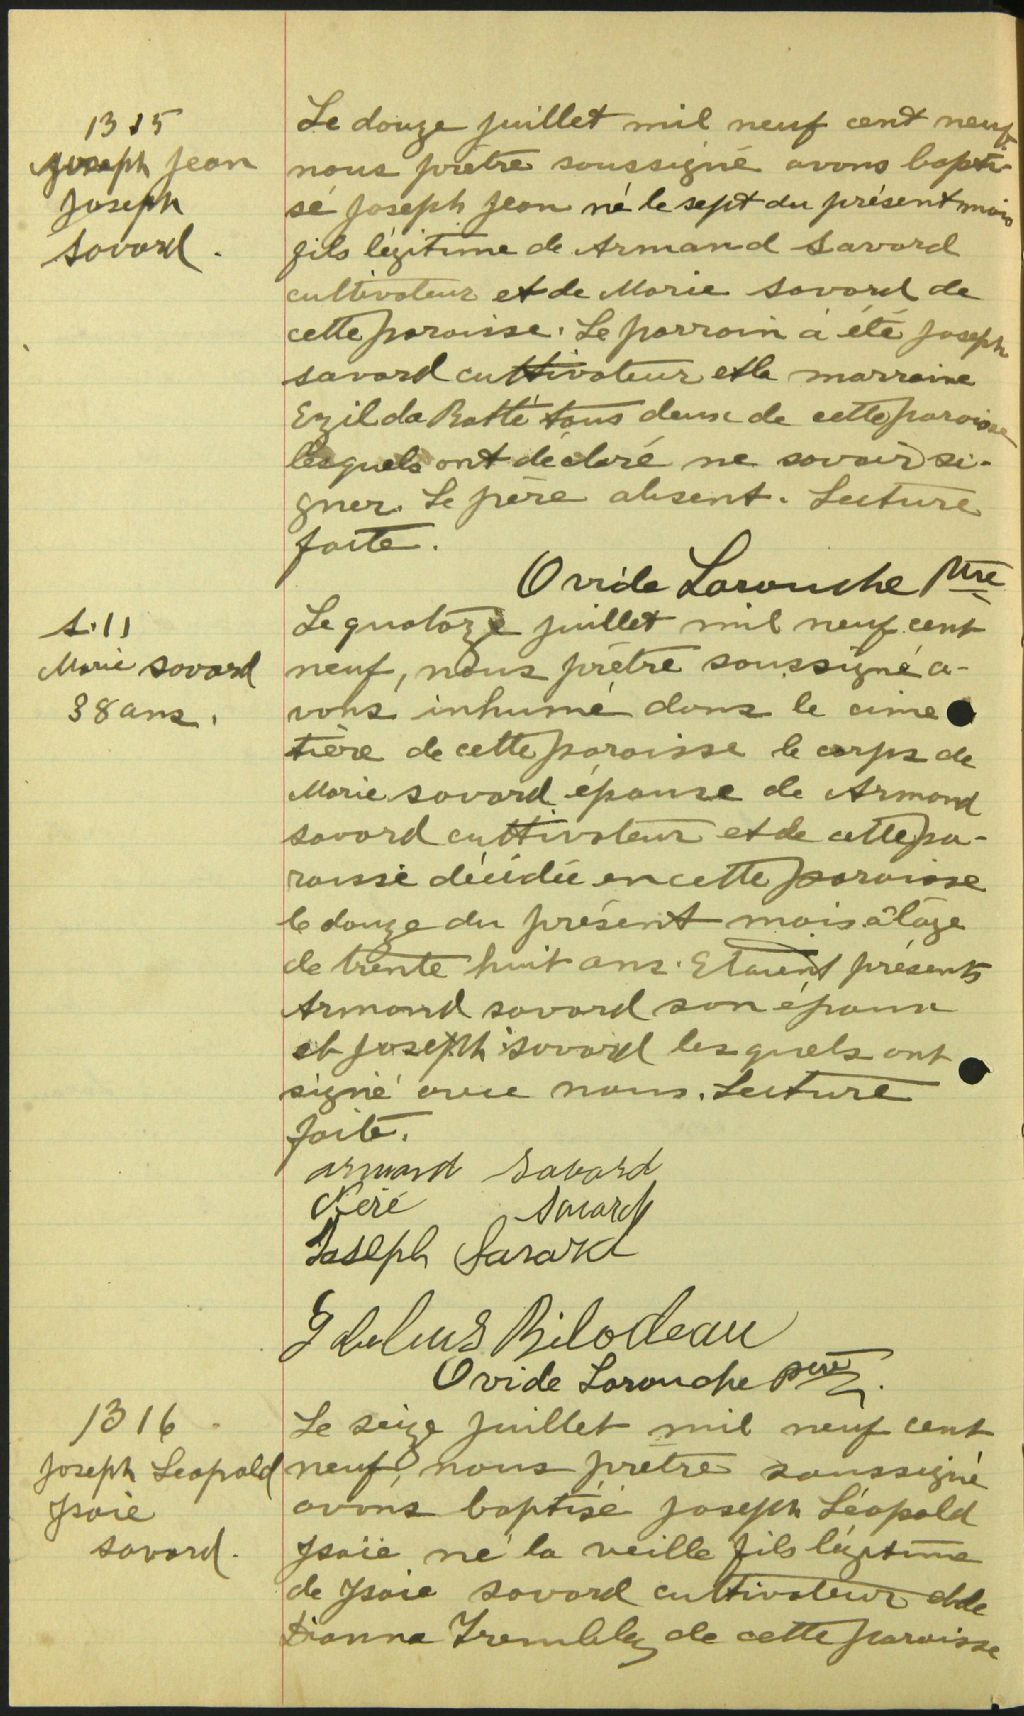 B 15
Joseph Jean
Joseph
Savard.
Le douze juillet mil neuf cent neuf
nous prêtre soussigné avons bapti-
sé Joseph Jean né le sept du présent mois
fils légitime de Armand Savard
cultivateur et de Marie Savard de
cette paroisse. Le parrain a été Joseph
Savard cultivateur et la marraine
Ezilda Ratté tous deux de cette paroisse
lesquels ont déclaré ne savoir si-
gner. Le père absent. Lecture
faite.
Ovide Larouche ptre
S. 11
Marie Savard
38 ans.
Le quatorze juillet mil neuf cent
neuf, nous prêtre soussigné a-
vons inhumé dans le cime
tière de cette paroisse le corps de
Marie Savard épouse de Armand
Savard cultivateur et de cette pa-
roisse décédée en cette paroisse
le douze du présent mois à l'âge
de trente huit ans. Etaient présents
Armand Savard son époux
et Joseph Savard lesquels ont
signé avec nous. Lecture
faite.
Armand Savard
Néré Savard
Joseph Savard
Bilodeau
Ovide Larouche ptre.
B 16
Joseph Leopold
Isaie
Savard.
Le seize juillet mil neuf cent
neuf, nous prêtre soussigné
avons baptisé Joseph Léopold
Isaïe né la veille fils légitime
de Isaie Savard cultivateur et de
Dianna Tremblay de cette paroisse